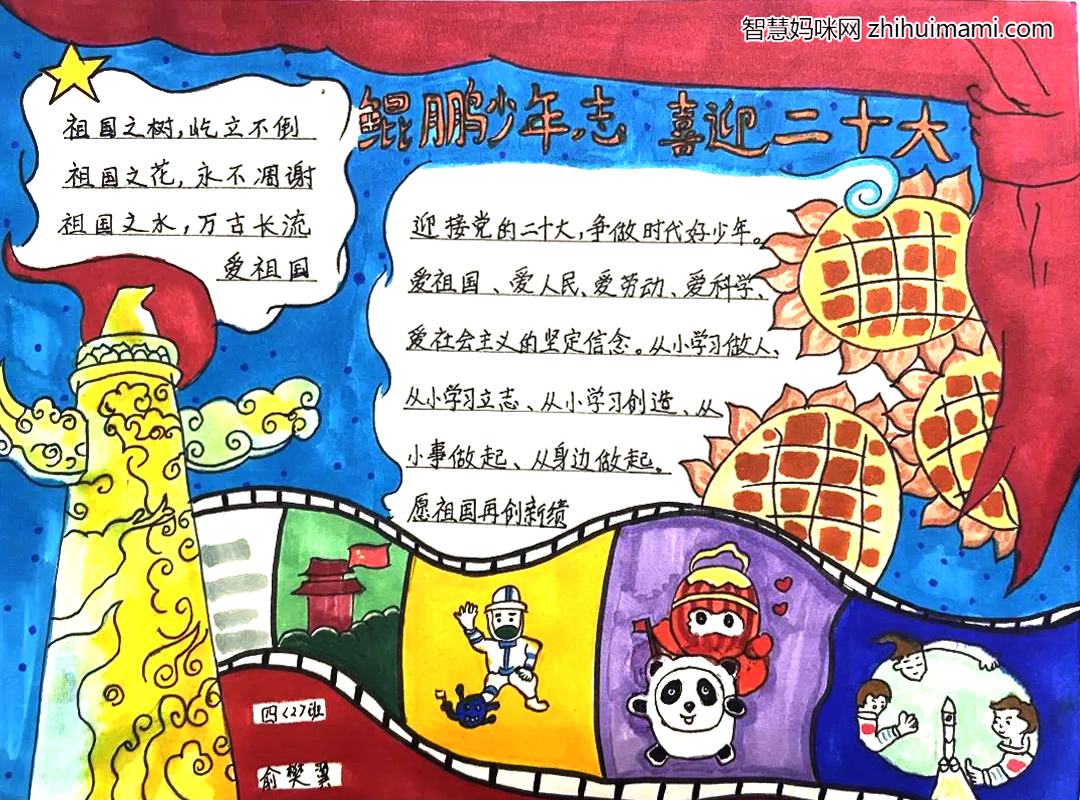 智慧妈咪网 zhihuimami.com
鲲鹏少年志 喜迎二十大
祖国之树,屹立不倒
祖国之花,永不凋谢
祖国之水,万古长流
爱祖国
迎接党的二十大,争做时代好少年。
爱祖国、爱人民、爱劳动、爱科学、
爱社会主义的坚定信念。从小学习做人、
从小学习立志、从小学习创造、从
小事做起、从身边做起。
愿祖国再创新绩
四〈2〉班
俞樊翼